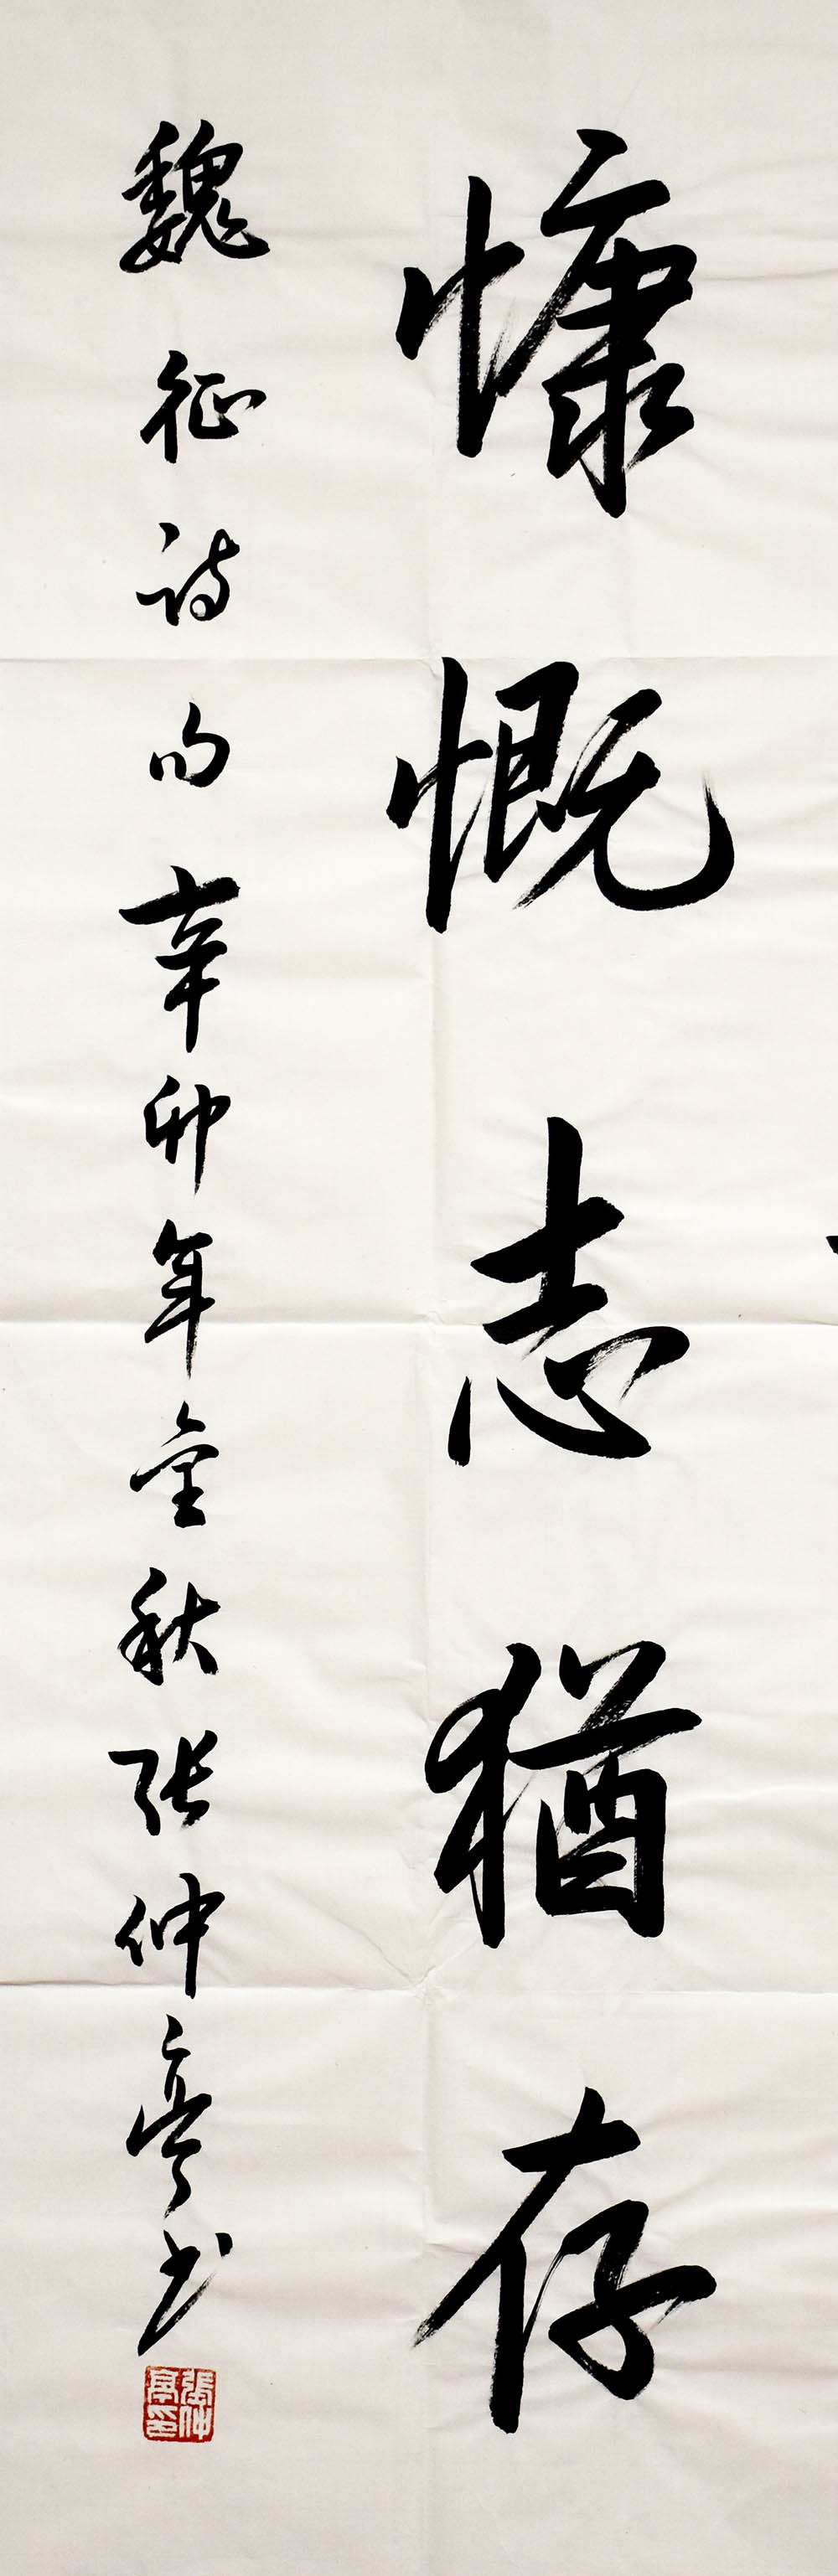 慷慨志猶存
魏征诗句辛卯年金秋张仲亭书
張仲亭印